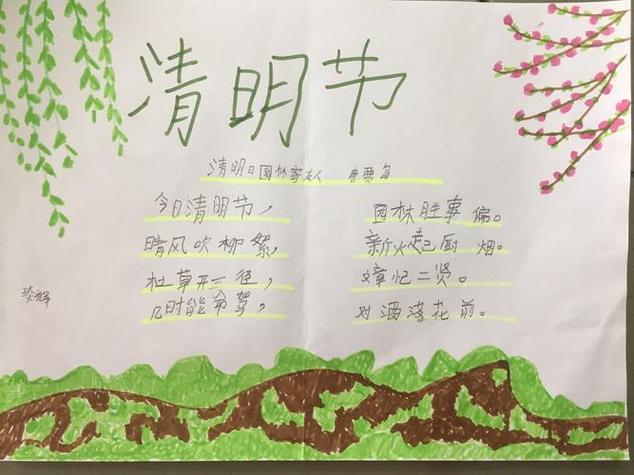 清明节
清明日园林寄友人 唐贾岛
今日清明节，
园林胜事偏。
晴风吹柳絮，
新火起厨烟。
杜草开三径，
文章忆二贤。
几时能命驾，
对酒落花前。